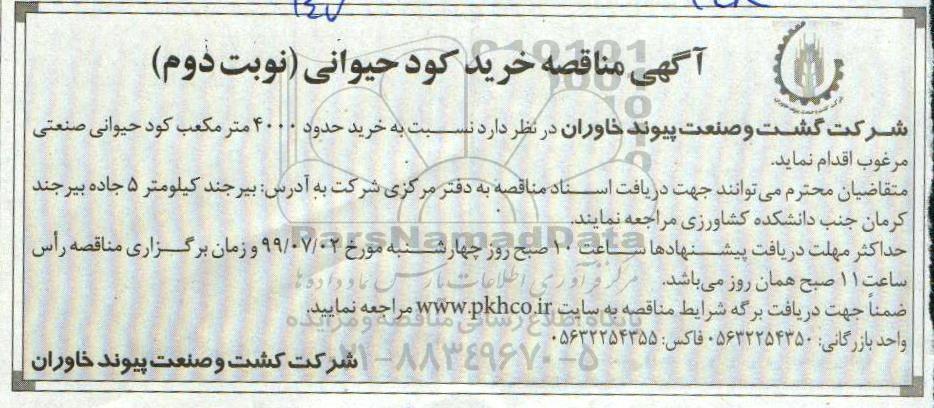 ۱۴۷
آگهی مناقصه خرید کود حیوانی (نوبت دوم)
شرکت گشت وصنعت پیوند خاوران در نظر دارد نسبت به خرید حدود ۴۰۰۰ متر مکعب کود حیوانی صنعتی
مرغوب اقدام نماید.
متقاضیان محترم می‌توانند جهت دریافت اسناد مناقصه به دفتر مرکزی شرکت به آدرس: بیرجند کیلومتر ۵ جاده بیرجند
کرمان جنب دانشکده کشاورزی مراجعه نمایند.
حداکثر مهلت دریافت پیشنهادها ساعت ۱۰ صبح روز چهارشنبه مورخ ۹۹/۰۷/۰۲ و زمان برگزاری مناقصه رأس
ساعت ۱۱ صبح همان روز می‌باشد.
ضمناً جهت دریافت برگه شرایط مناقصه به سایت www.pkhco.ir مراجعه نمایید.
واحد بازرگانی: ۰۵۶۳۲۲۵۴۳۵۰ فاکس: ۰۵۶۳۲۲۵۴۳۵۵
شرکت کشت وصنعت پیوند خاوران
ParsNamadData
مرکز فرآوری اطلاعات پارس نماد داده ها
پایگاه اطلاع رسانی مناقصه و مزایده
۰۲۱-۸۸۳۴۹۶۷۰-۵